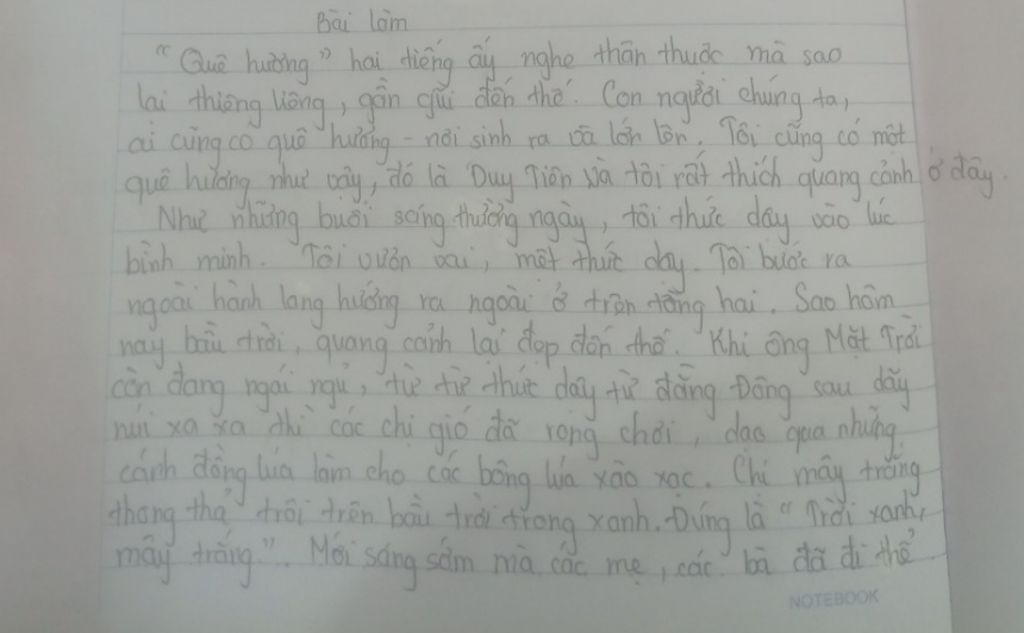 Bài làm
"Quê hương" hai tiếng ấy nghe thân thuộc mà sao
lại thiêng liêng, gần gũi đến thế. Con người chúng ta,
ai cũng có quê hương - nơi sinh ra và lớn lên. Tôi cũng có một
quê hương như vậy, đó là Duy Tiên và tôi rất thích quang cảnh ở đây.
Như những buổi sáng thường ngày, tôi thức dậy vào lúc
bình minh. Tôi vươn vai, mệt thức dậy. Tôi bước ra
ngoài hành lang hướng ra ngoài ở trên tầng hai. Sao hôm
nay bầu trời, quang cảnh lại đẹp đến thế. Khi ông Mặt Trời
còn đang ngái ngủ, từ từ thức dậy từ đằng Đông sau dãy
núi xa xa thì các chị gió đã rong chơi, dạo qua những
cánh đồng lúa làm cho các bông lúa xào xạc. Chị mây trắng
thong thả trôi trên bầu trời trong xanh. Đúng là "Trời xanh,
mây trắng". Mới sáng sớm mà các mẹ, các bà đã đi thể
NOTEBOOK